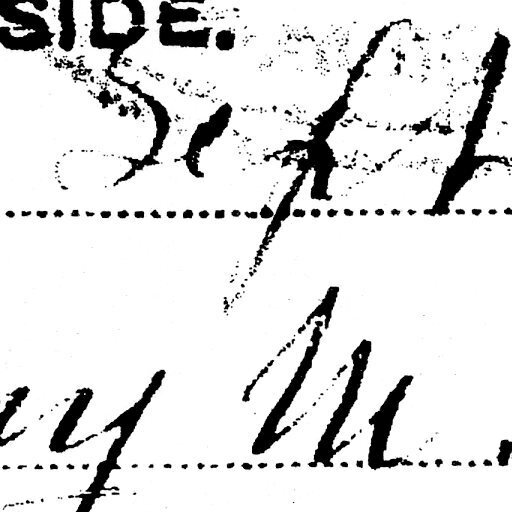 SIDE.
Sept
y M.